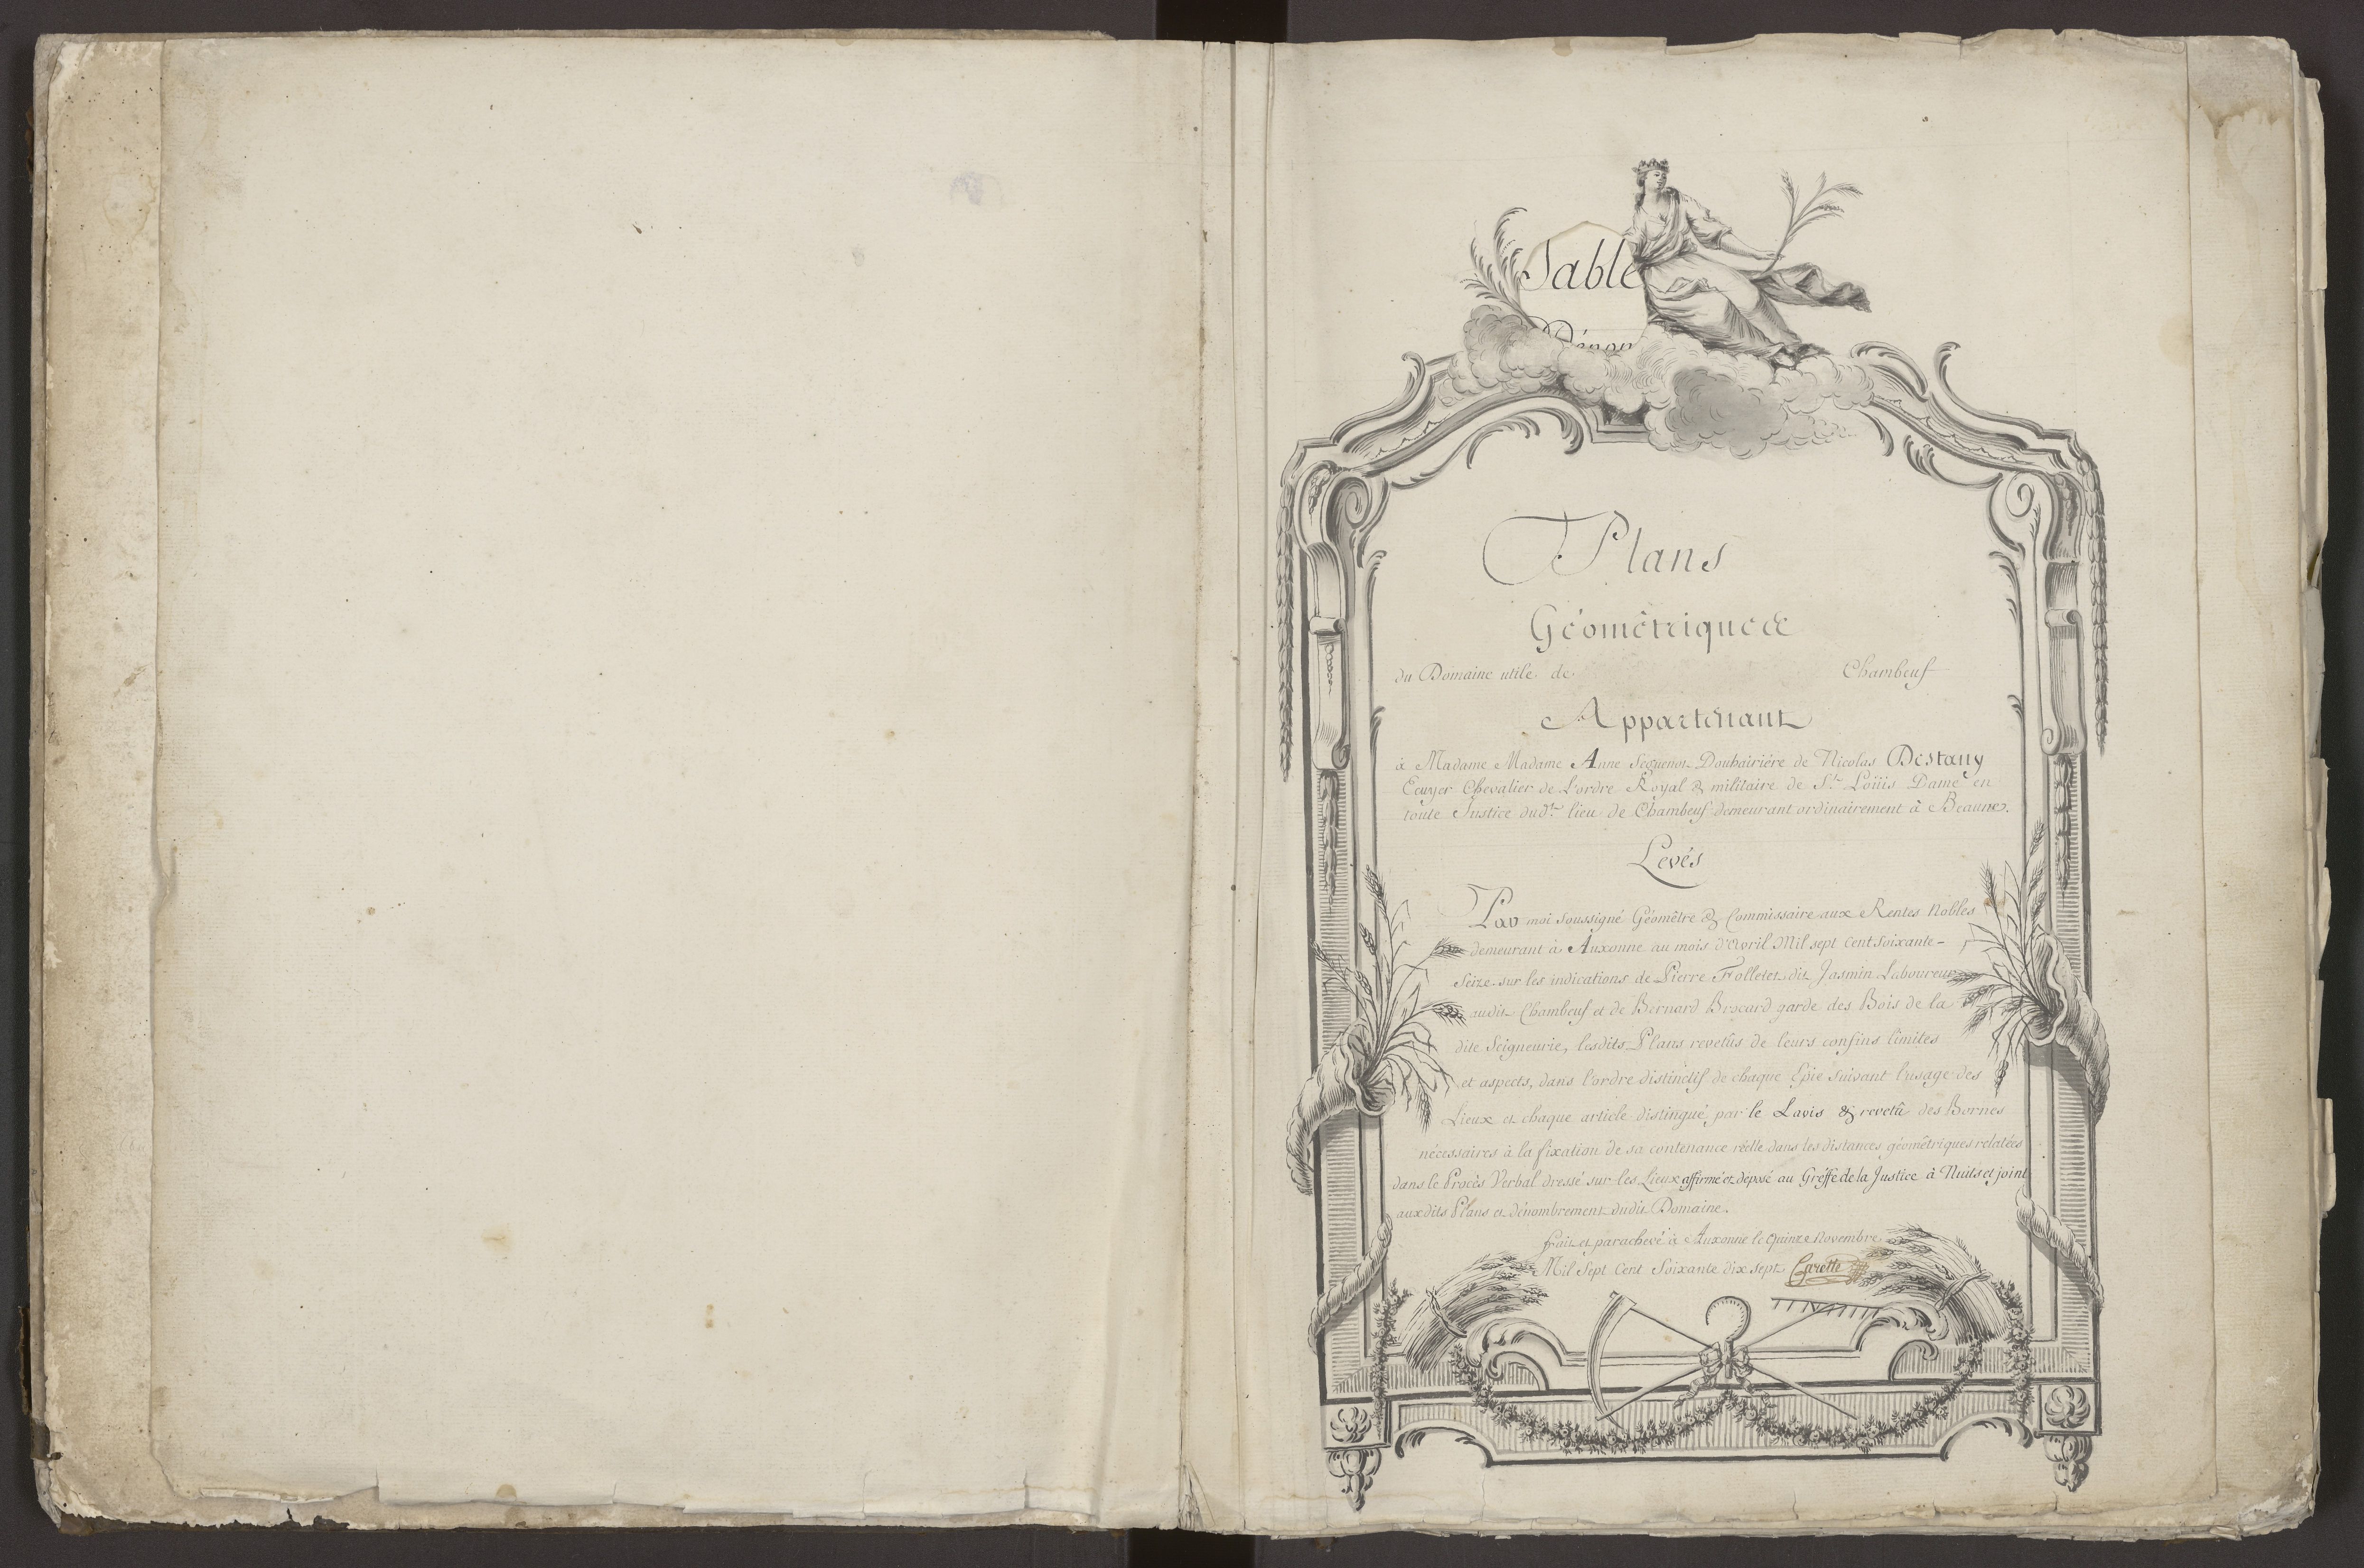 Table
Dénom
Plans
Géométriques
du Domaine utile de Chambeuf
Appartenant
à Madame Madame Anne Seguenot Douhairiére de Nicolas Destany
Ecuyer Chevalier de L'ordre Royal & militaire de St. Loüis Dame en
toute Justice dudt. lieu de Chambeuf demeurant ordinairement à Beaune.
Levés
Par moi soussigné Géomêtre & Commissaire aux Rentes Nobles
demeurant à Auxonne au mois d'Avril Mil sept Cent soixante-
seize sur les indications de Pierre Folletet dit Jasmin Laboureur
audit Chambeuf et de Bernard Brocard garde des Bois de la
dite Seigneurie, lesdits Plans revetûs de leurs confins limites
et aspects, dans l'ordre distinctif de chaque Epie suivant l'usage des
Lieux et chaque article distingué par le Lavis & revetû des Bornes
nécessaires à la fixation de sa contenance réelle dans les distances géométriques relatées
dans le Procès Verbal dressé sur les Lieux affirmé et déposé au Greffe de la Justice à Nuits et joint
auxdits Plans et dénombrement dudit Domaine.
fait et parachevé à Auxonne le quinze Novembre
Mil Sept Cent Soixante dix sept